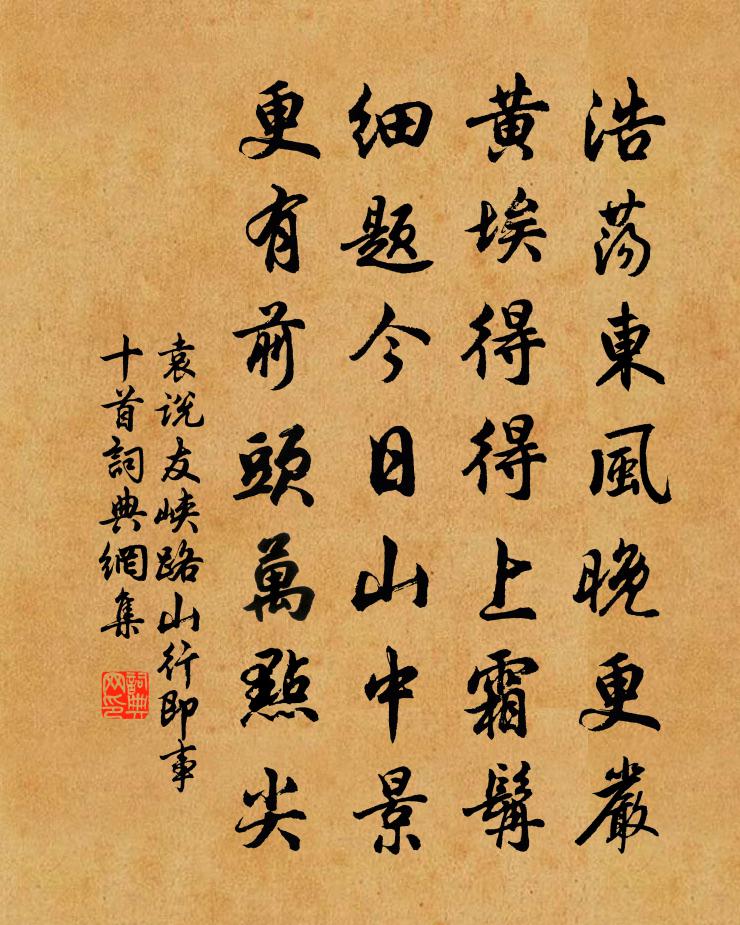 浩荡東風晚更嚴
黄埃得得上霜髯
细题今日山中景
更有前頭萬點尖
袁说友峡路山行即事
十首詞典網集
詞典網印